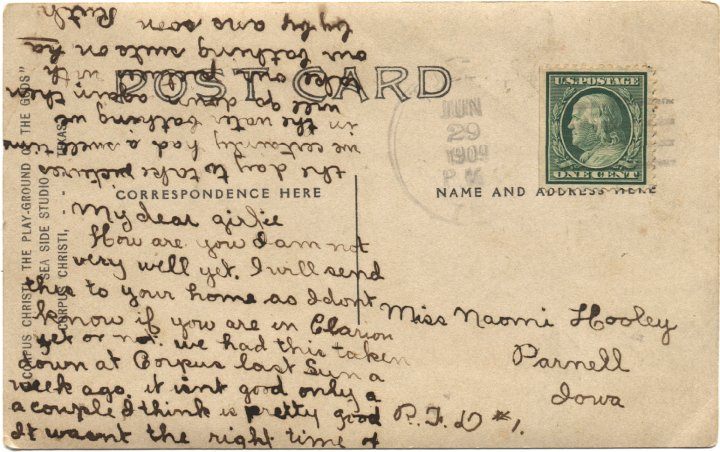 POST CARD
U.S. POSTAGE
ONE CENT
JUN
29
1909
P.M.
CORRESPONDENCE HERE
NAME AND ADDRESS HERE
CORPUS CHRISTI, THE PLAY-GROUND OF THE GODS"
SEA SIDE STUDIO
CORPUS CHRISTI, - - TEXAS
My dear girlie
How are you I am not
very well yet. I will send
this to your home as I dont
know if you are in Clarion
yet or not. we had this taken
down at Corpus last Sun a
week ago. it isnt good only a
a couple I think is pretty good
It wasnt the right time of
the day to take pictures
we certainly had a
in the water bathing we
will go down again then
our bathing suits on ha
by by ans soon
Ruth
Miss Naomi Hooley
Parnell
Iowa
R.F.D #1.